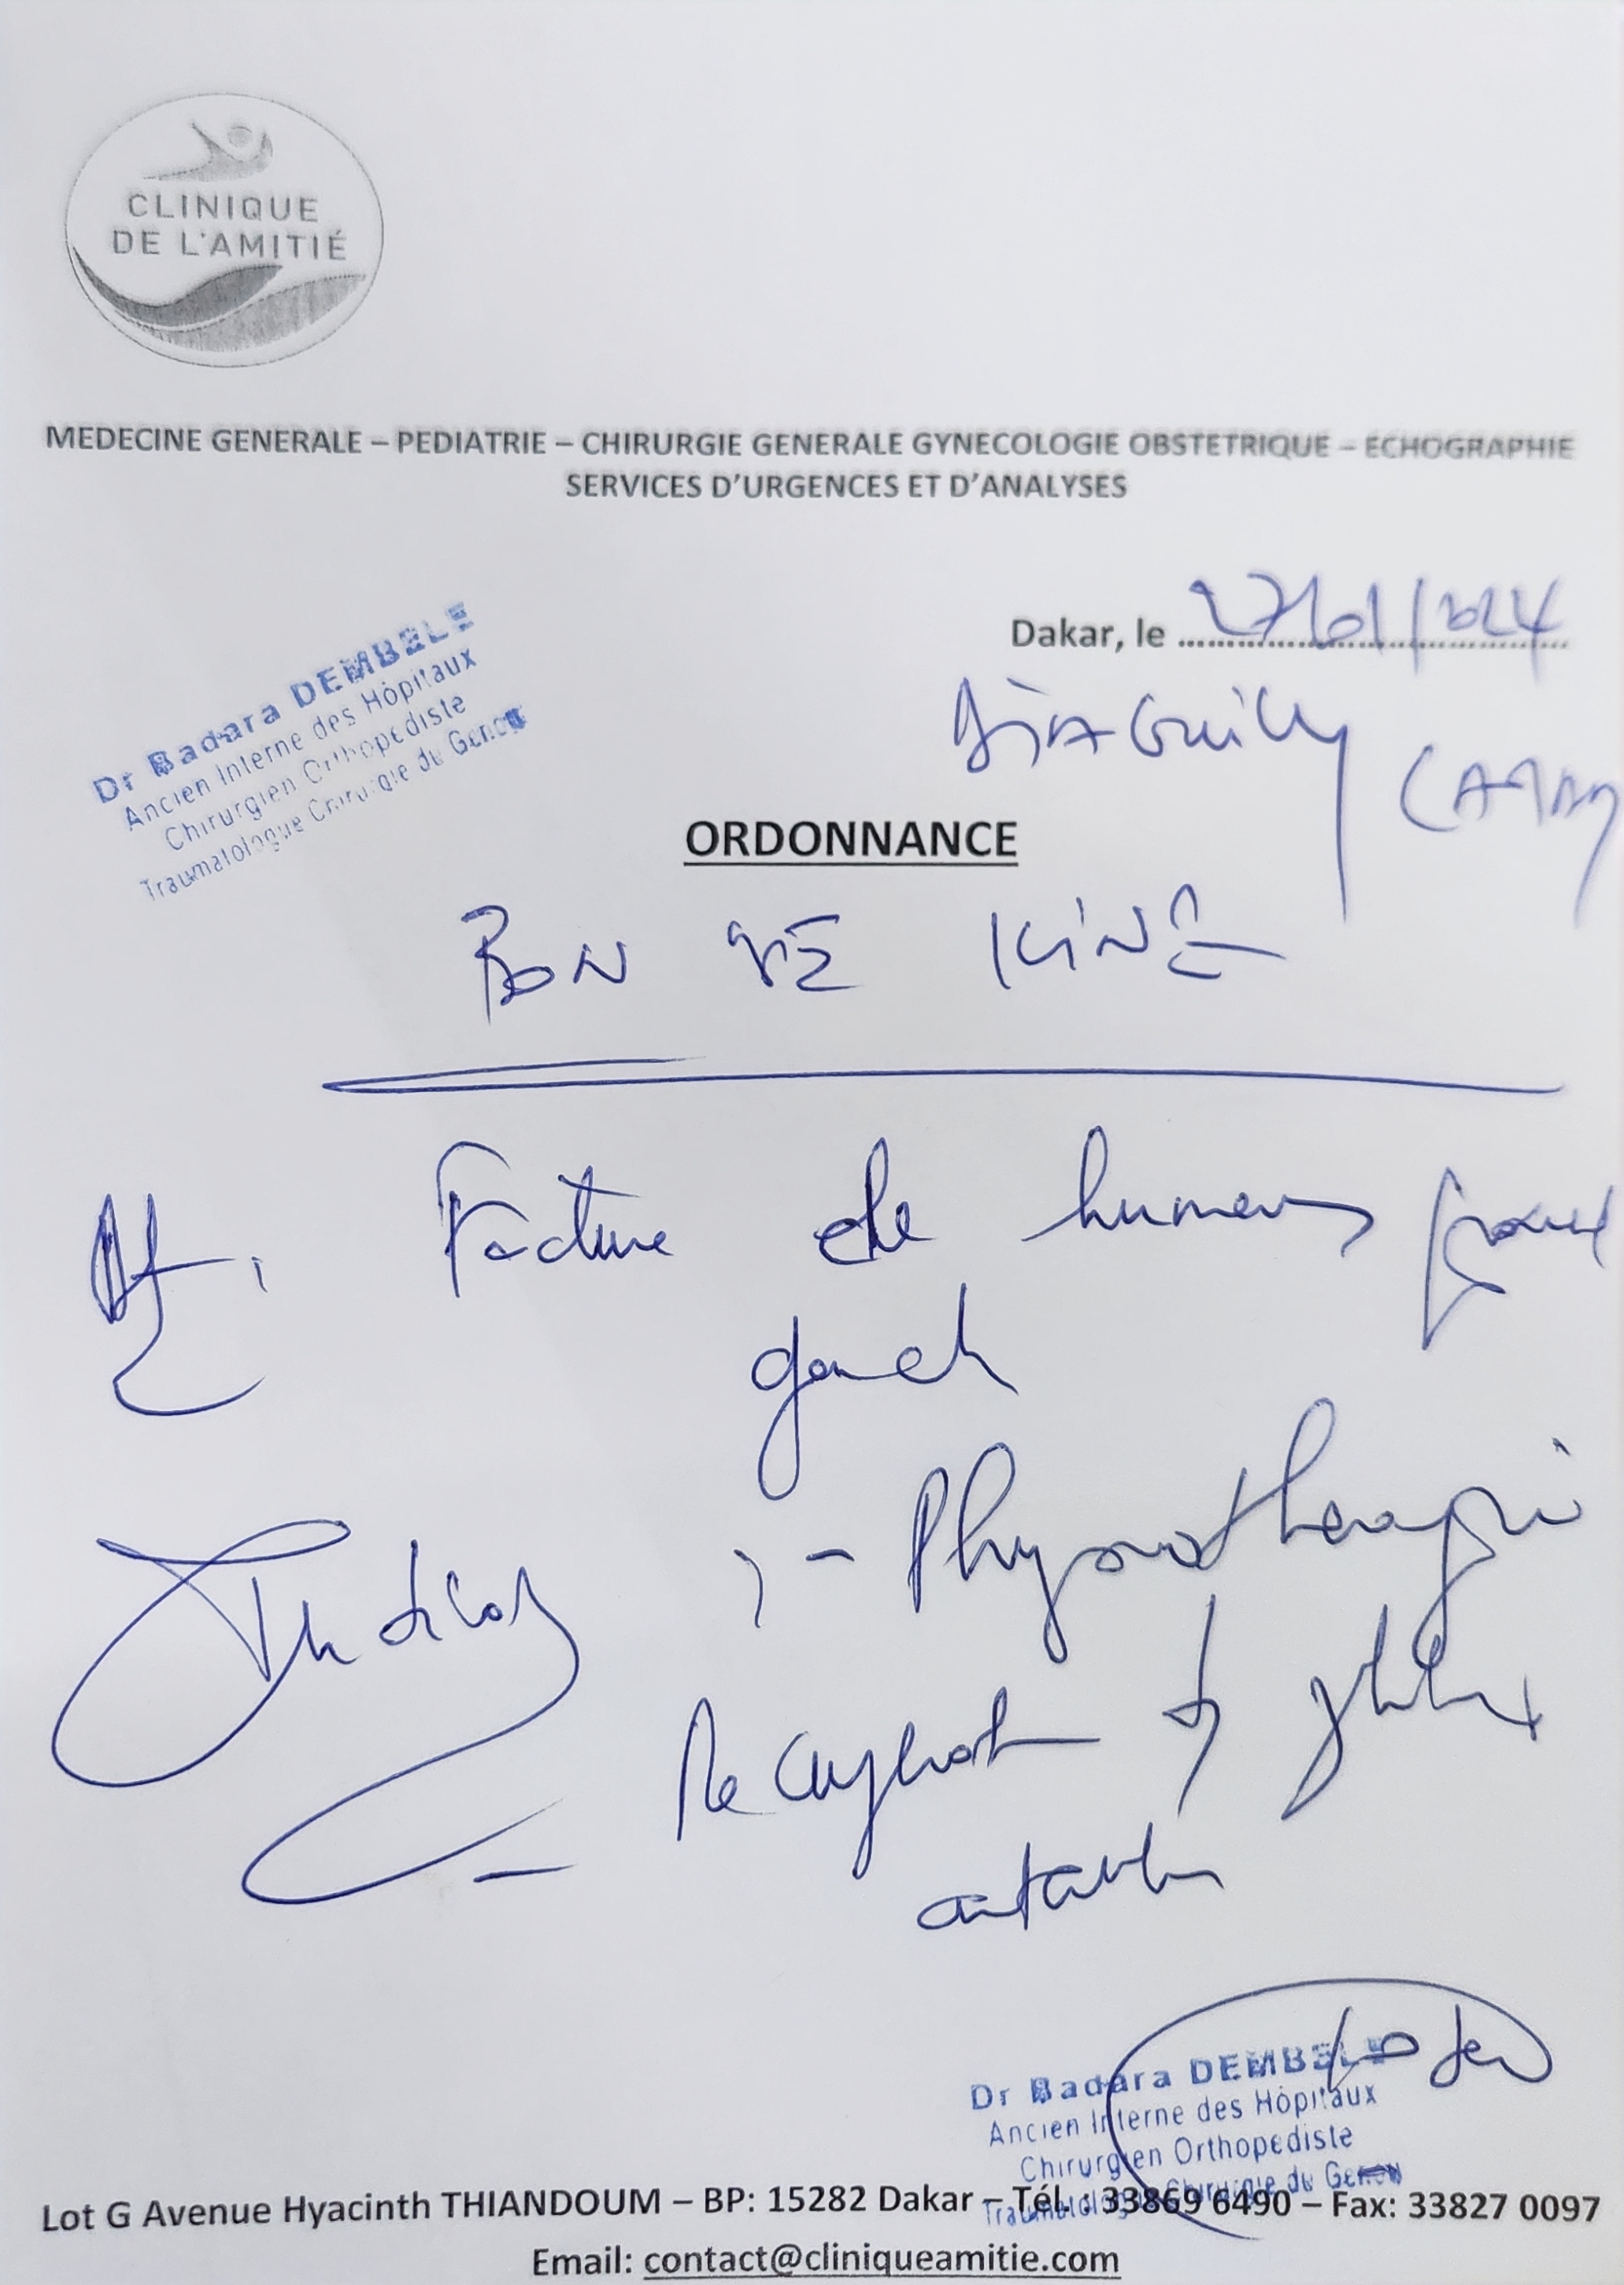 CLINIQUE
DE L'AMITIÉ
MEDECINE GENERALE – PEDIATRIE – CHIRURGIE GENERALE GYNECOLOGIE OBSTETRIQUE – ECHOGRAPHIE
SERVICES D'URGENCES ET D'ANALYSES
Dakar, le 27/01/2024
Dr Badara DEMBELE
Ancien Interne des Hôpitaux
Chirurgien Orthopediste
Traumatologue Chirurgie du Genou
DiAGuily
ORDONNANCE
BON DE KiNE
Facture de humerus
gauch
: - Physiotherapi
Dr Badara DEMBELE
Ancien Interne des Hôpitaux
Chirurgien Orthopediste
Chirurgie du Genou
Lot G Avenue Hyacinth THIANDOUM – BP: 15282 Dakar – Tél. : 33869 6490 – Fax: 33827 0097
Email: contact@cliniqueamitie.com